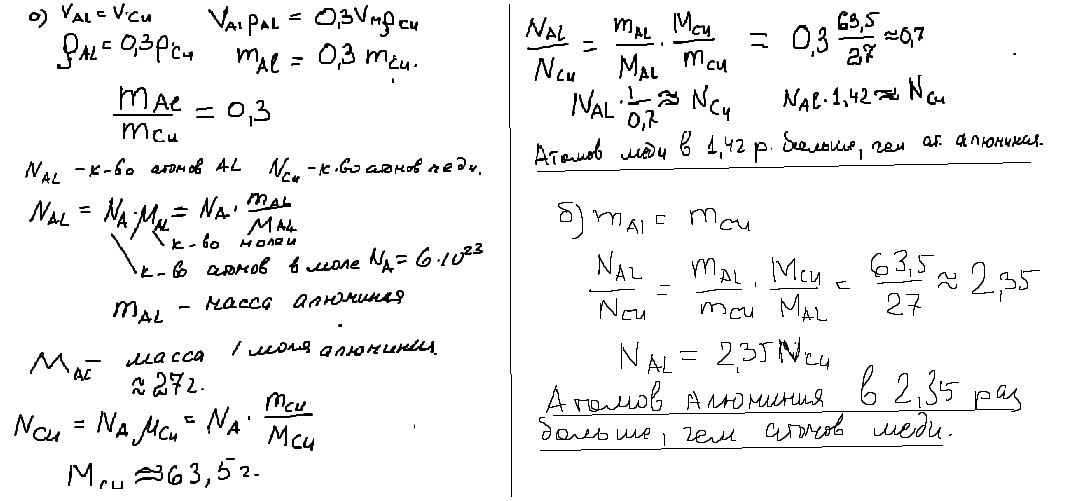 а) V_Al = V_Cu V_Al ρ_AL = 0,3V_M ρ_Cu
ρ_AL = 0,3ρ_Cu m_Al = 0,3 m_Cu.
m_Al / m_Cu = 0,3
N_AL - к-во атомов AL N_Cu - к-во атомов меди.
N_AL = N_A · μ_AL = N_A · m_AL / M_AL
к-во молей
к-во атомов в моле N_A = 6·10²³
m_AL - масса алюминия
M_Al - масса 1 моля алюминия.
≈ 27 г.
N_Cu = N_A μ_Cu = N_A · m_Cu / M_Cu
M_Cu ≈ 63,5 г.
N_AL / N_Cu = m_AL / M_AL · M_Cu / m_Cu = 0,3 63,5 / 27 ≈ 0,7
N_AL · 1 / 0,7 ≈ N_Cu N_Al · 1,42 ≈ N_Cu
Атомов меди в 1,42 р. больше, чем ат. алюминия.
б) m_Al = m_Cu
N_AL / N_Cu = m_AL / m_Cu · M_Cu / M_AL = 63,5 / 27 ≈ 2,35
N_AL = 2,35 N_Cu
Атомов алюминия в 2,35 раз
больше, чем атомов меди.